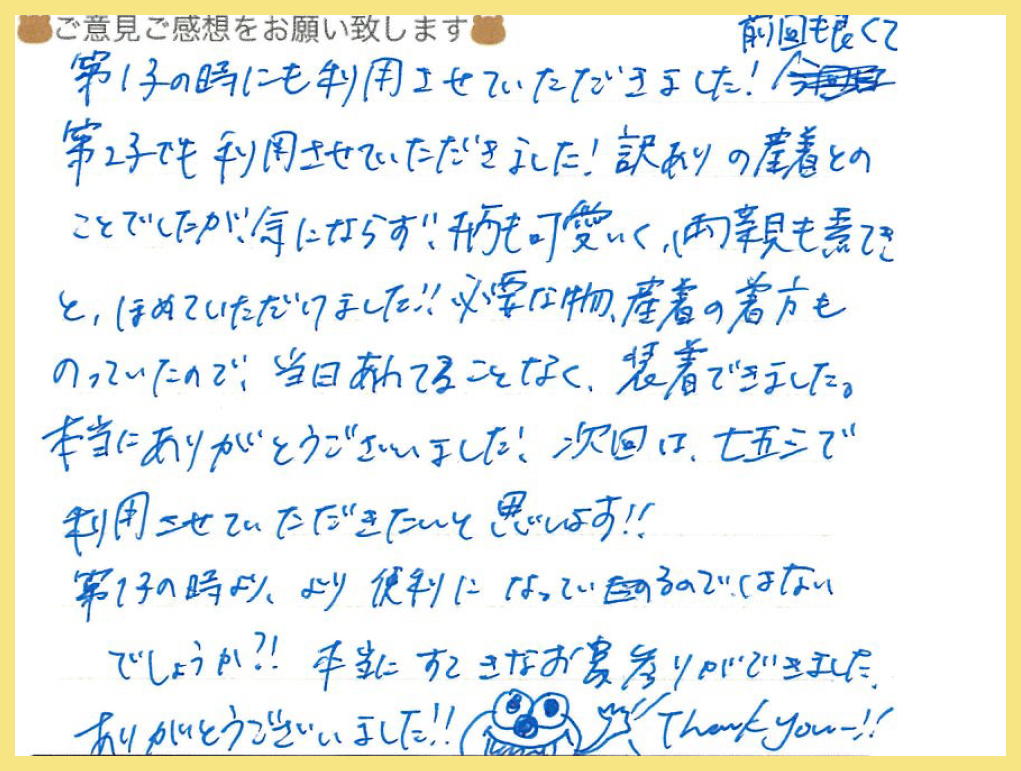 ご意見ご感想をお願い致します
前回も良くて
第1子の時にも利用させていただきました!
第2子でも利用させていただきました!訳ありの産着との
ことでしたが、気にならず、柄も可愛いく、両親も素てき
と、ほめていただけました!!必要な物、産着の着方も
のっていたので、当日あわてることなく、装着できました。
本当にありがとうございました!次回は、七五三で
利用させていただきたいと思います!!
第1子の時より、より便利になっているのではない
でしょうか?!本当にすてきなお宮参りができました。
ありがとうございました!! Thank you〜!!